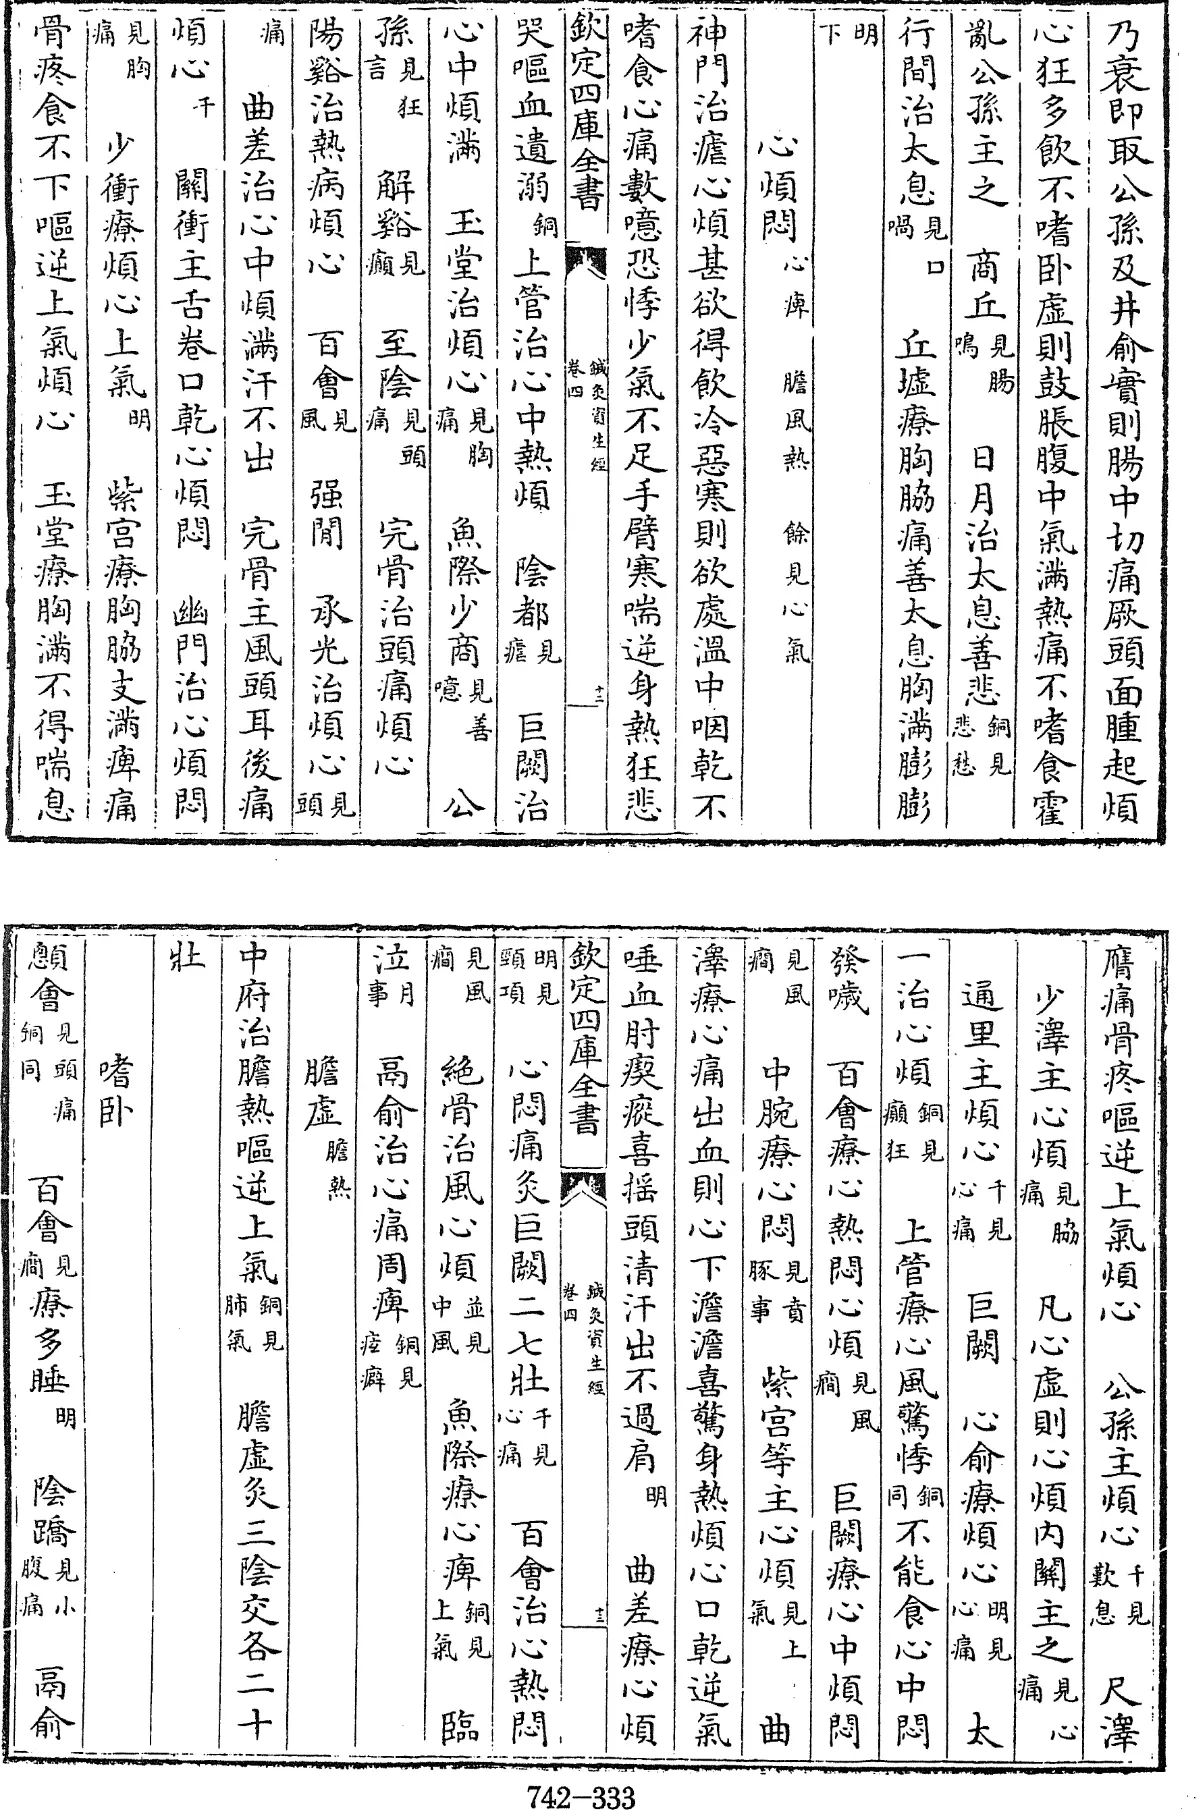 乃衰即取公孫及井俞實則腸中切痛厥頭面腫起煩
心狂多飲不嗜卧虛則鼓脹腹中氣滿熱痛不嗜食霍
亂公孫主之　商丘見腸鳴　日月治太息善悲銅見悲愁
行間治太息見口喎　丘墟療胸脇痛善太息胸滿膨膨
明下
心煩悶心痺　膽風熱　餘見心氣
神門治瘧心煩甚欲得飲冷惡寒則欲處溫中咽乾不
嗜食心痛數噫恐悸少氣不足手臂寒喘逆身熱狂悲
欽定四庫全書　鍼灸資生經卷四　十二
哭嘔血遺溺銅　上管治心中熱煩　陰都見瘧　巨闕治
心中煩滿　玉堂治煩心見胸痛　魚際少商見善噫　公
孫見狂言　解谿見癲　至陰見頭痛　完骨治頭痛煩心
陽谿治熱病煩心　百會見風　强間　承光治煩心見頭
痛　曲差治心中煩滿汗不出　完骨主風頭耳後痛
煩心千　關衝主舌卷口乾心煩悶　幽門治心煩悶
見胸痛　少衝療煩心上氣明　紫宫療胸脇支滿痺痛
骨疼食不下嘔逆上氣煩心　玉堂療胸滿不得喘息
膺痛骨疼嘔逆上氣煩心　公孫主煩心千見歎息　尺澤
少澤主心煩見脇痛　凡心虛則心煩内關主之見心痛
通里主煩心千見心痛　巨闕　心俞療煩心明見心痛　太
一治心煩銅見癲狂　上管療心風驚悸銅同不能食心中悶
發噦　百會療心熱悶心煩見風癇　巨闕療心中煩悶
見風癇　中脘療心悶見賁豚事　紫宫等主心煩見上氣　曲
澤療心痛出血則心下澹澹喜驚身熱煩心口乾逆氣
唾血肘瘈瘲喜摇頭清汗出不過肩明　曲差療心煩
欽定四庫全書　鍼灸資生經卷四　十三
明見頸項　心悶痛灸巨闕二七壯千見心痛　百會治心熱悶
見風癇　絶骨治風心煩並見中風　魚際療心痺銅見上氣　臨
泣月事　鬲俞治心痛周痺銅見痃癖
膽虛膽熱
中府治膽熱嘔逆上氣銅見肺氣　膽虛灸三陰交各二十
壯
嗜卧
顖會見頭痛銅同　百會見癇療多睡明　陰蹻見小腹痛　鬲俞
742-333